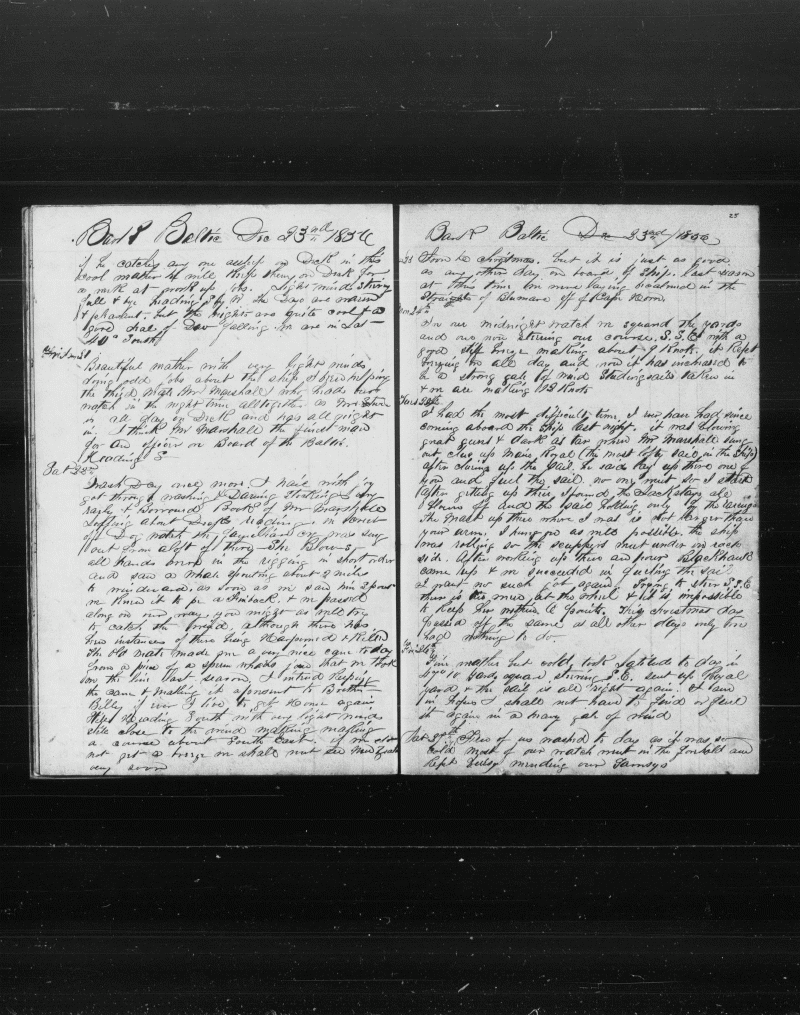 Bark Baltic Dec 23rd 1856
if he catches any one asleep on Deck in this
cool weather he will keep them on Deck for
a week at work up jobs. Light winds strong
full & bye heading S by W. The Days are warm
& pleasant. but the nights are quite cool & a
good deal of Dew falling we are in Lat
40° South
Beautiful weather with very light winds
doing odd jobs about the ship I been helping
the third Mate Mr Marshall who heads our
watch in the night time altogether as Mr
is all day on Deck and has all night
in. I think Mr Marshall the finest man
for an officer on Board of the Baltic.
Heading S
Sat 22nd
Wash Day once more. I have with joy
got through washing & Darning Stockings & my
rags & Borrowed Book of Mr Marshall
Setting about Dusk reading in sunset
of Dog watch the familiar cry was sung
out from aloft of there She Blows
all hands were in the rigging in short order
and saw a whale spouting about 2 miles
to windward. as soon as we saw him spout
we knew it to be a Finback. & we passed
along on our way. you might as well try
to catch the wind, although there has
been instances of there being Harpooned & Killed
The old mate made me a very nice cane to day
from a piece of a sperm whales jaw that we took
on the line last season. I intend keeping
the cane & making it a present to Brother
Billey if ever I live to get Home again
Kept Heading South with very light winds
close to the wind making
a course about South East. if we
not get a breeze we shall not see
very soon
25
Bark Baltic Dec 23rd / 1856
Soon be christmas. but it is just as good
as any other day on board of ship. last season
at this time we were laying becalmed in the
Straights of Lemaire off of Cape Horn.
Mon 24th
In our midnight watch we squared the yards
and are now steering our course. S.S.E. with a
good stiff breeze making about 9 Knots. it Kept
breezing on all day and now it has increased to
be a strong gale of wind Studdingsails taken in
& we are making 12 Knots
Tues 25th
I had the most difficulty time I ever have had since
coming aboard the Ship last night. it was blowing
great guns & dark as tar when Mr Marshall sung
out clew up Main Royal (the most lofty sail in the Ship)
after clewing up the sail. he said lay up there one of
you and furl the sail. no one went so I started
after getting up there I found the Jackstays all
off and the sail holding only by the
The mast up there where I was is not larger than
your arm. I hung on as well possible. the ship
was rolling so the scuppers went under on each
side. After working up there an hour
came up & we succeeded in furling the sail.
I want no such job again. Trying to steer S.S.E
there is two men at the wheel & it is impossible
to keep her within 6 points. This christmas day
passed off the same as all other days only we
had nothing to do.
26th
Fine weather but cold, took latitude to day in
Yards square, steering S.E. sent up Royal
yard & the sail is all right again. I am
in hopes I shall not have to find or furl
it again in a heavy gale of wind
27th Few of us washed to day as it was so
cold most of our watch went in the forecastle and
Kept busy mending our